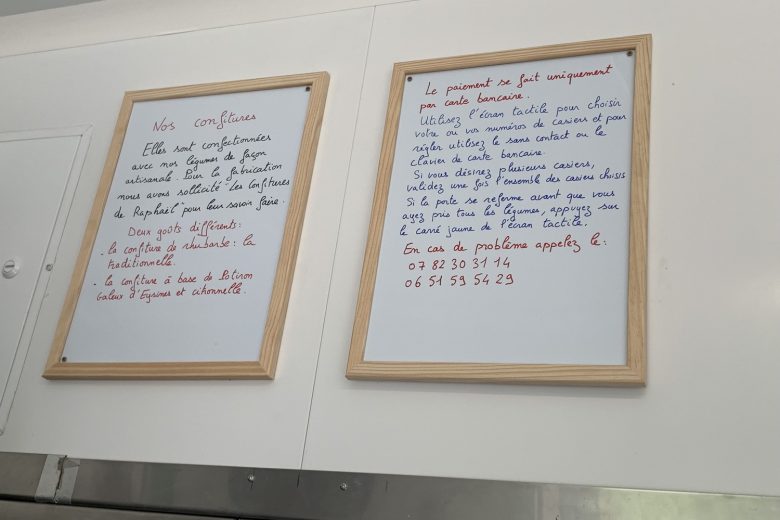 Nos confitures
Elles sont confectionnées
avec nos légumes de façon
artisanale. Pour la fabrication
nous avons sollicité "Les confitures
de Raphaël" pour leur savoir faire.
Deux goûts différents:
- la confiture de rhubarbe: la
traditionnelle.
- la confiture à base de Potiron
Galeux d'Eysines et citronnelle.
Le paiement se fait uniquement
par carte bancaire.
Utilisez l'écran tactile pour choisir
votre ou vos numéros de casiers et pour
régler utilisez le sans contact ou le
clavier de carte bancaire.
Si vous désirez plusieurs casiers,
validez une fois l'ensemble des casiers choisis
Si la porte se referme avant que vous
ayez pris tous les légumes, appuyez sur
le carré jaune de l'écran tactile.
En cas de problème appelez le:
07 82 30 31 14
06 51 59 54 29